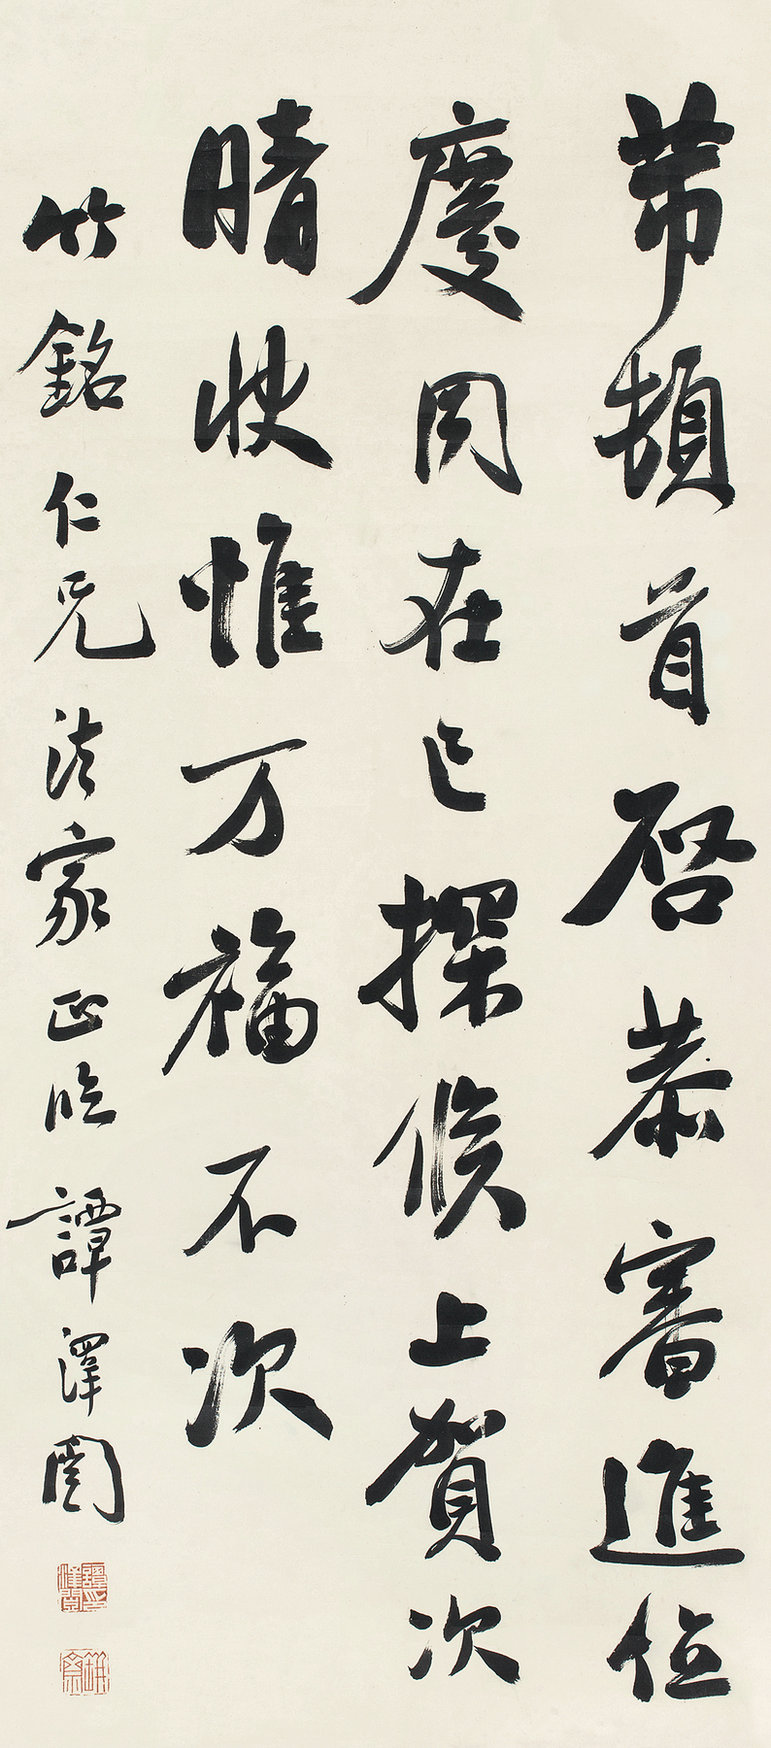 芾頓首啓恭審進位
慶同在己探候上賀次
晴快惟万福不次
竹銘仁兄法家正臨 譚澤闓
譚澤闓印